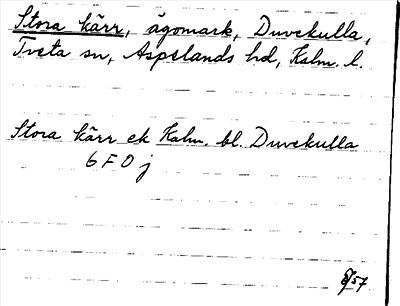 Stora kärr, ägomark, Duvekulla,
Tveta sn, Aspelands hd, Kalm. l.
Stora kärr ek Kalm. bl. Duvekulla
6 F 0 j
57